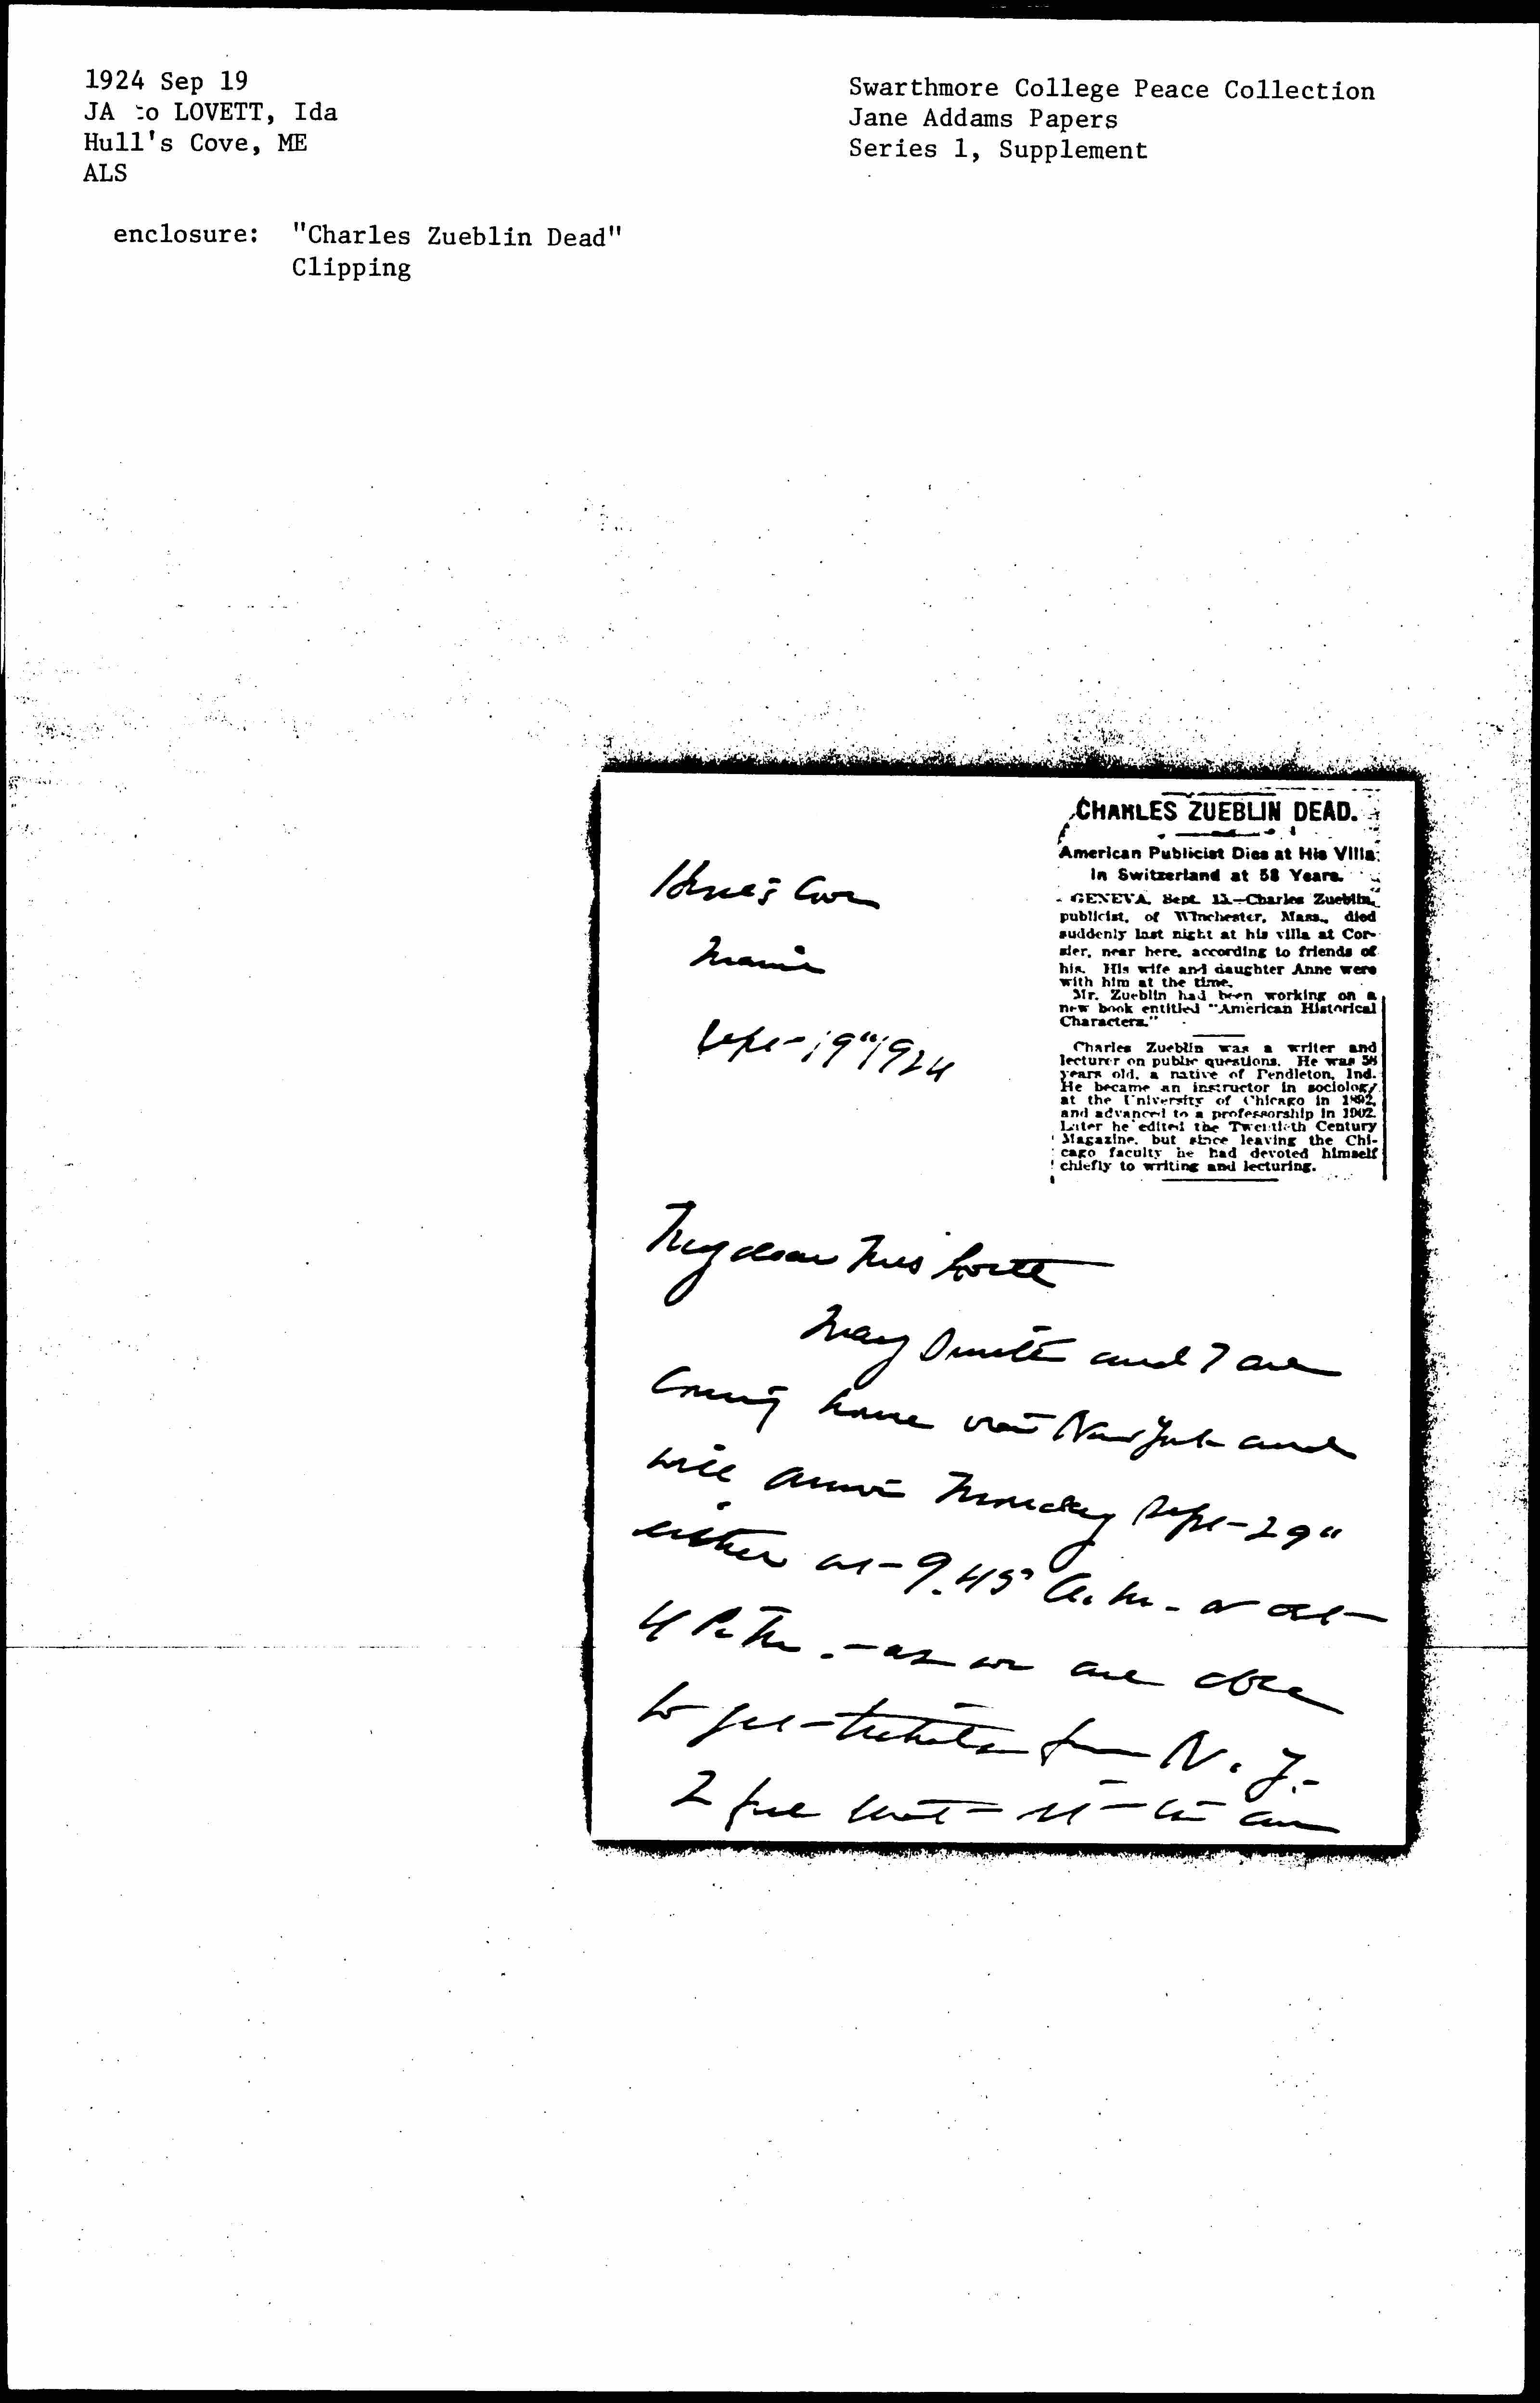 1924 Sep 19
JA to LOVETT, Ida
Hull's Cove, ME
ALS
enclosure: "Charles Zueblin Dead"
Clipping
Swarthmore College Peace Collection
Jane Addams Papers
Series 1, Supplement
CHARLES ZUEBLIN DEAD.
American Publicist Dies at His Villa
in Switzerland at 58 Years.
GENEVA, Sept. —Charles Zueblin,
publicist, of Winchester, Mass., died
suddenly last night at his villa at Cor-
sier, near here, according to friends of
his. His wife and daughter Anne were
with him at the time.
Mr. Zueblin had been working on a
new book entitled "American Historical
Characters."
Charles Zueblin was a writer and
lecturer on public questions. He was 58
years old, a native of Pendleton, Ind.
He became an instructor in sociology
at the University of Chicago in 1892,
and advanced to a professorship in 1902.
Later he edited the Twentieth Century
Magazine, but since leaving the Chi-
cago faculty he had devoted himself
chiefly to writing and lecturing.
Hull's Cove
Maine
Sept- 19" 1924
My dear Mrs Lovett
Mary Smith and I are
coming home via New York and
will arrive Monday Sept- 29"
either at- 9.45 A.M. - or at-
4 P.M. - as we are able
to get- tickets from N.Y.-
I feel that- it- is an